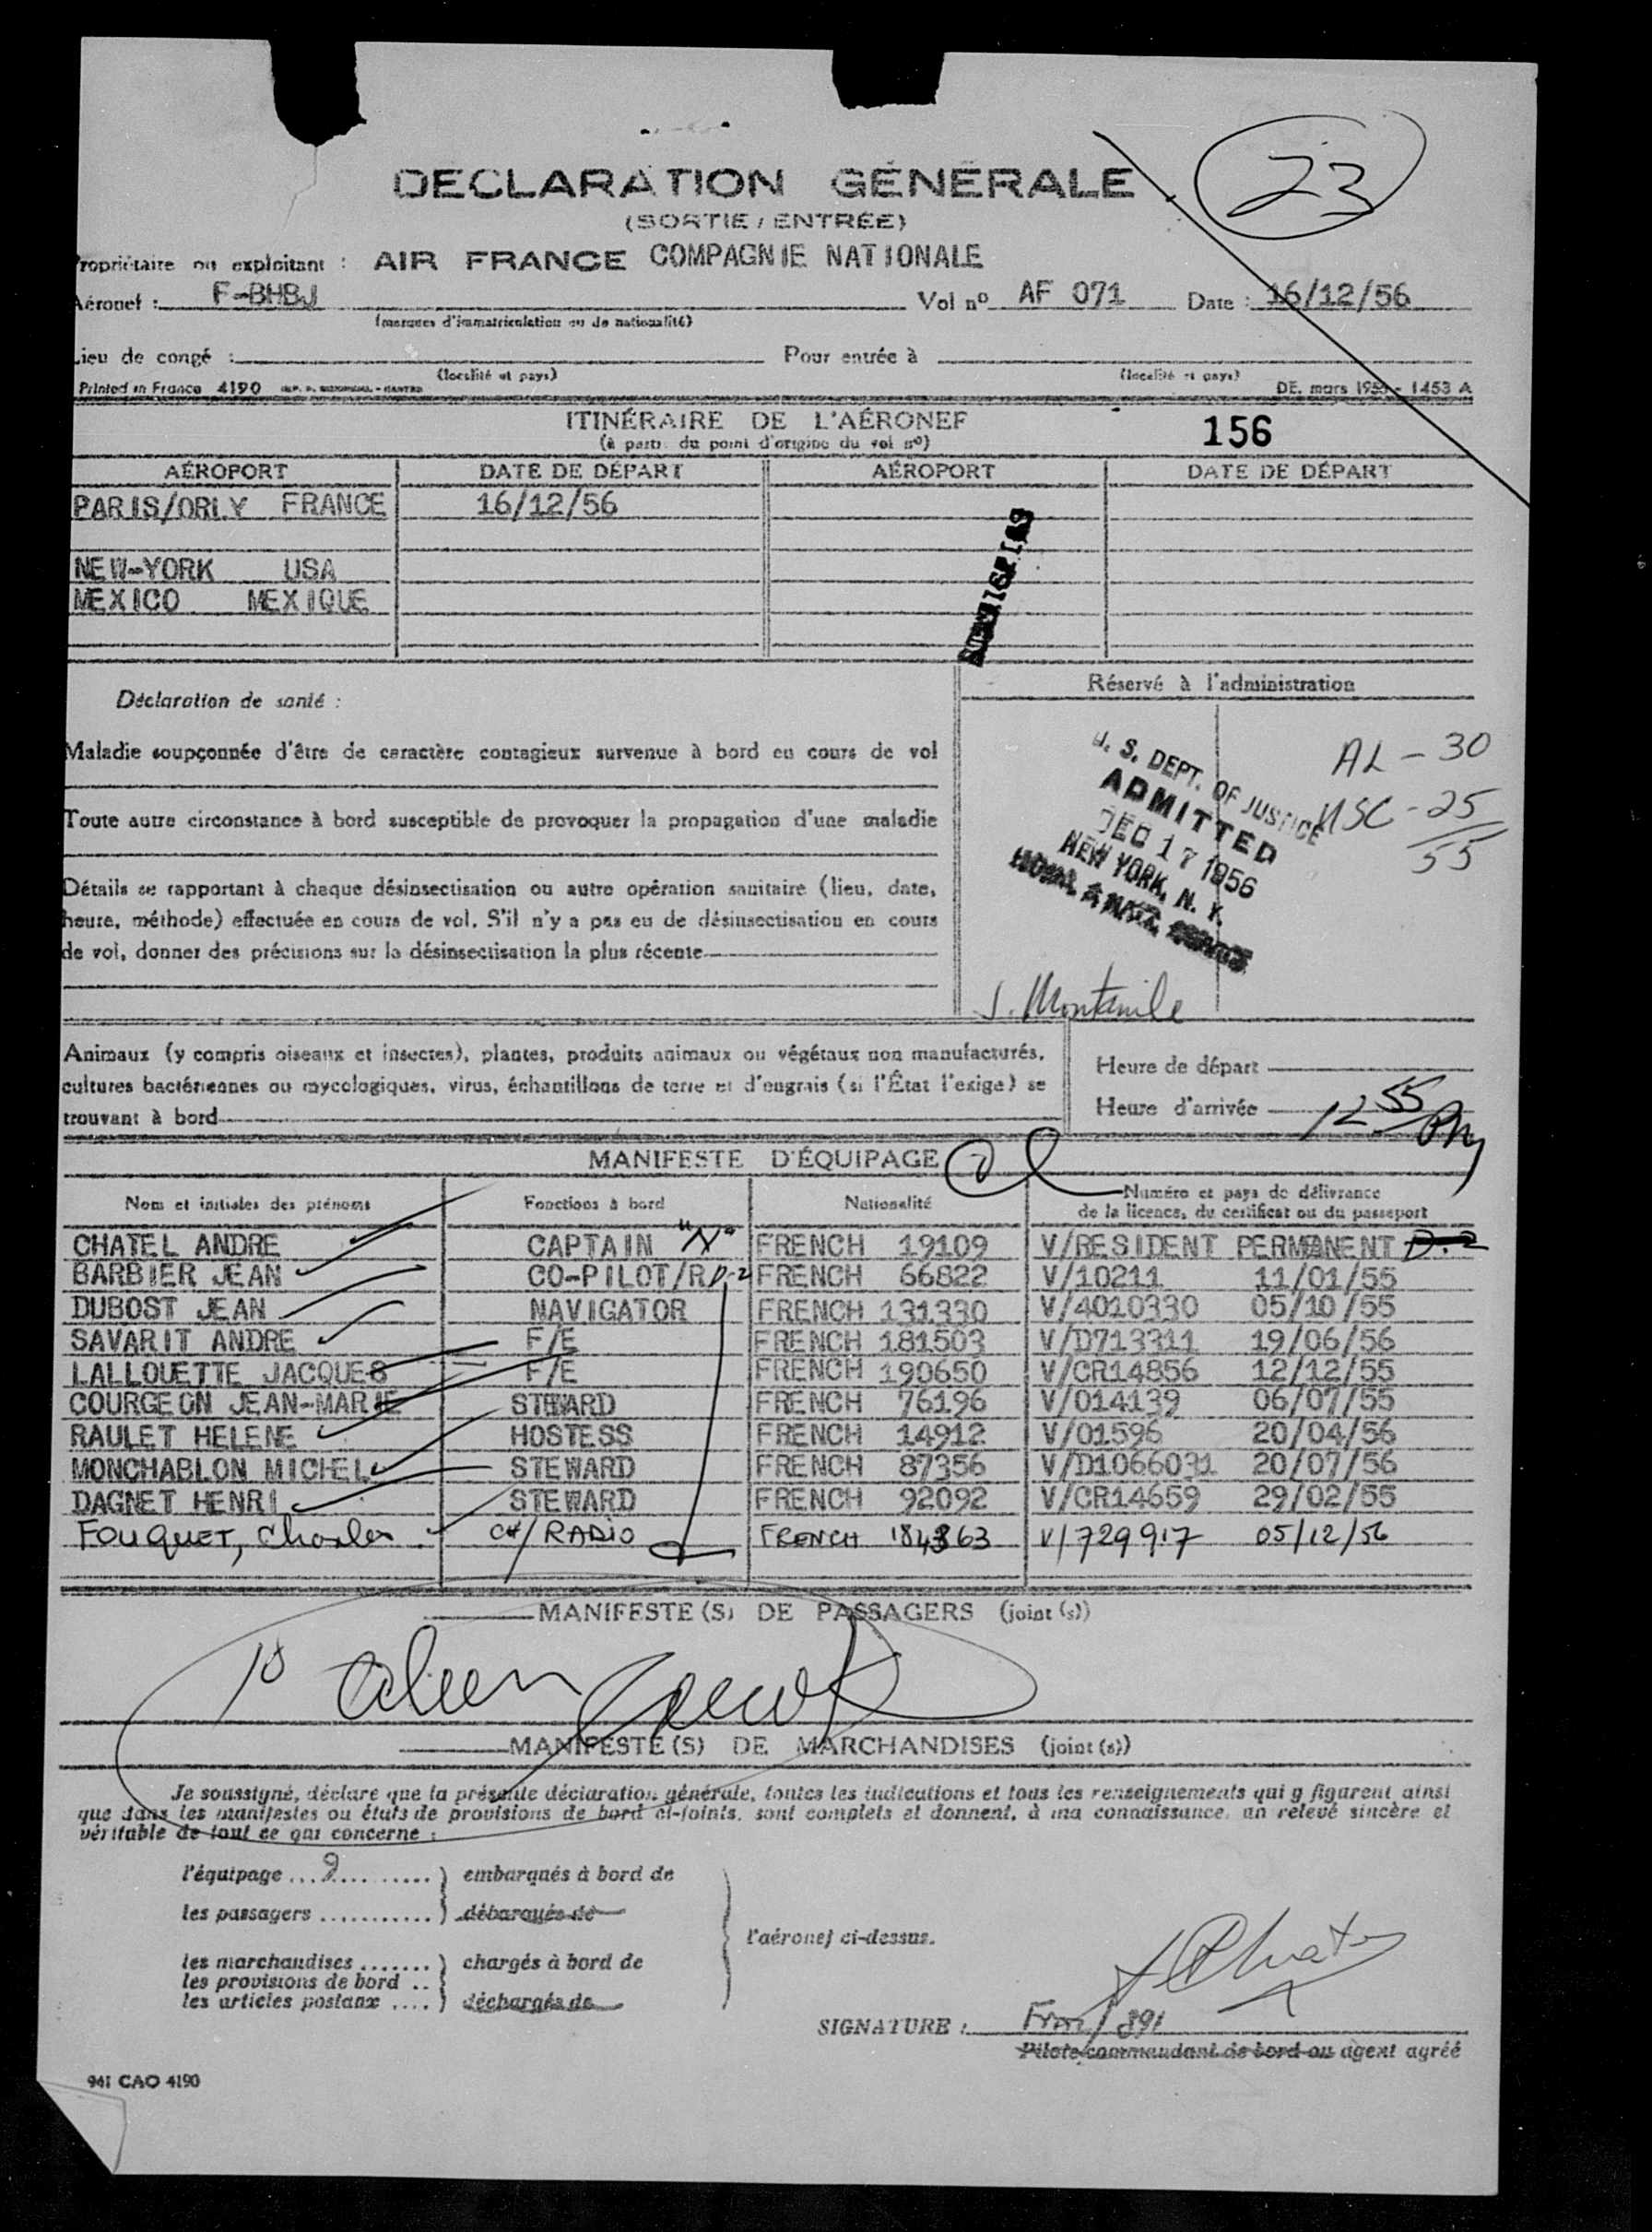 DECLARATION GÉNÉRALE
23
(SORTIE / ENTRÉE)
Propriétaire ou exploitant : AIR FRANCE COMPAGNIE NATIONALE
Aéronef : F-BHBJ Vol nº AF 071 Date : 16/12/56
(marques d'immatriculation ou de nationalité)
Lieu de congé : Pour entrée à
(localité et pays) (localité et pays)
Printed in France 4190 DE. mars 195 - 1453 A
ITINÉRAIRE DE L'AÉRONEF
156
(à partir du point d'origine du vol nº)
AÉROPORT DATE DE DÉPART AÉROPORT DATE DE DÉPART
PARIS/ORLY FRANCE 16/12/56
NEW-YORK USA
MEXICO MEXIQUE
Réservé à l'administration
Déclaration de santé :
Maladie soupçonnée d'être de caractère contagieux survenue à bord en cours de vol
Toute autre circonstance à bord susceptible de provoquer la propagation d'une maladie
Détails se rapportant à chaque désinsectisation ou autre opération sanitaire (lieu, date,
heure, méthode) effectuée en cours de vol. S'il n'y a pas eu de désinsectisation en cours
de vol, donner des précisions sur la désinsectisation la plus récente
U. S. DEPT. OF JUSTICE
ADMITTED
DEC 17 1956
NEW YORK, N. Y.
AL - 30
USC - 25
55
Animaux (y compris oiseaux et insectes), plantes, produits animaux ou végétaux non manufacturés,
cultures bactériennes ou mycologiques, virus, échantillons de terre et d'engrais (si l'État l'exige) se
trouvant à bord
Heure de départ
Heure d'arrivée 12 55 PM
MANIFESTE D'ÉQUIPAGE
Nom et initiales des prénoms Fonctions à bord Nationalité Numéro et pays de délivrance
de la licence, du certificat ou du passeport
CHATEL ANDRE CAPTAIN "N" FRENCH 19109 V/RESIDENT PERMANENT D-2
BARBIER JEAN CO-PILOT/R D-2 FRENCH 66822 V/10211 11/01/55
DUBOST JEAN NAVIGATOR FRENCH 131330 V/4010330 05/10/55
SAVARIT ANDRE F/E FRENCH 181503 V/D713311 19/06/56
LALLOUETTE JACQUES F/E FRENCH 190650 V/CR14856 12/12/55
COURGEON JEAN-MARIE STEWARD FRENCH 76196 V/014139 06/07/55
RAULET HELENE HOSTESS FRENCH 14912 V/01596 20/04/56
MONCHABLON MICHEL STEWARD FRENCH 87356 V/D1066031 20/07/56
DAGNET HENRI STEWARD FRENCH 92092 V/CR14659 29/02/55
FOUQUET, Charles CH/RADIO FRENCH 184363 V/729917 05/12/56
MANIFESTE(S) DE PASSAGERS (joint (s))
MANIFESTE(S) DE MARCHANDISES (joint (s))
Je soussigné, déclare que la présente déclaration générale, toutes les indications et tous les renseignements qui y figurent ainsi
que dans les manifestes ou états de provisions de bord ci-joints, sont complets et donnent, à ma connaissance, un relevé sincère et
véritable de tout ce qui concerne :
l'équipage ... 9 .......... ) embarqués à bord de
les passagers ........... ) débarqués de
l'aéronef ci-dessus.
les marchandises ....... ) chargés à bord de
les provisions de bord ..
les articles postaux .... ) déchargés de
SIGNATURE :
Pilote commandant de bord ou agent agréé
941 CAO 4190